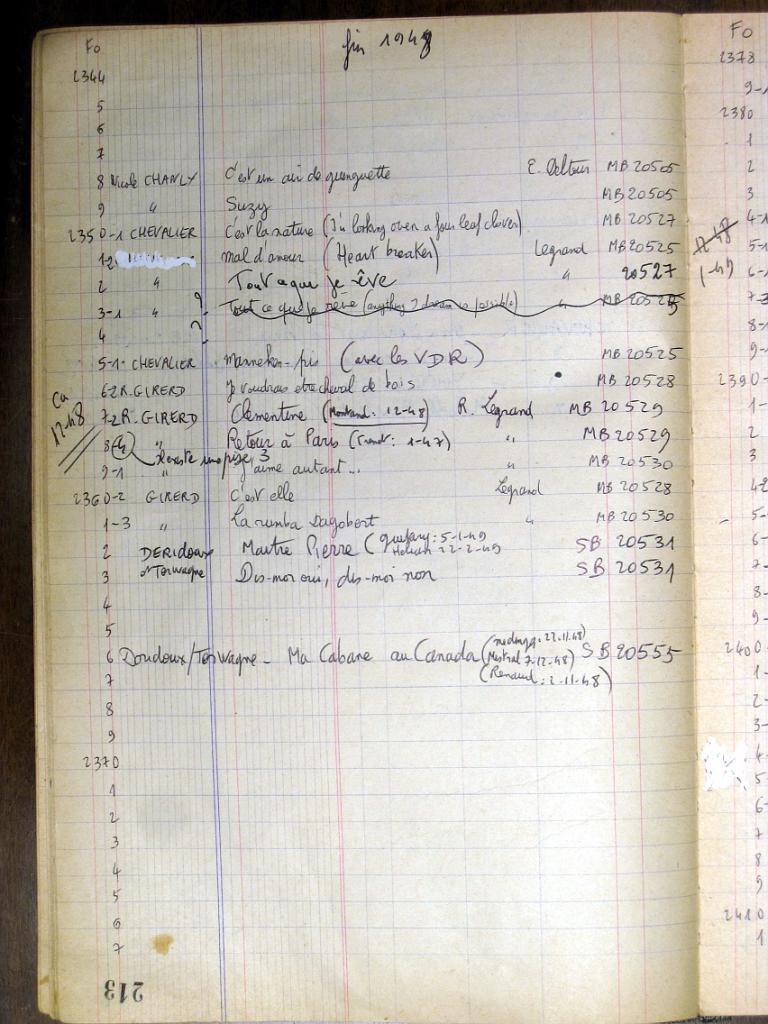 Fo
fin 1948
2344
5
6
7
8 Nicole CHANLY C'est un air de guinguette E. Delteur MB 20505
9 " Suzy MB 20505
2350-1 CHEVALIER C'est la nature (I'm looking over a four leaf clover) MB 20527
1-2 mal d'amour (Heart breaker) Legrand MB 20525
2 " Tout a que je rêve " 20527
3-1 " ? Tout ce que je rêve (anything I dream is possible) " MB 20525
4 ?
5-1- CHEVALIER Manneken-pis (avec les VDR) MB 20525
6-2 R. GIRERD Je voudrais etre cheval de bois MB 20528
Ca 12-48
7-2 R. GIRERD Clementine (Montand: 12-48) R. Legrand MB 20529
8 (4) " Retour à Paris (Trenet: 1-47) " MB 20529
Il existe une prise 3
9-1 " J'aime autant... " MB 20530
2360-2 GIRERD C'est elle Legrand MB 20528
1-3 " La rumba Dagobert " MB 20530
2 DERIDoux Maitre Pierre (Guétary: 5-1-49
Hélian 22-2-49 SB 20531
3 et Torwagne Dis-moi oui, dis-moi non SB 20531
4
5
6 Doudoux/Torwagne - Ma Cabane au Canada ( 22.11.48)
(Mistral 7-12-48) SB 20555
(Renaud: 2-11-48)
7
8
9
2370
1
2
3
4
5
6
7
213
Fo
2378
9-1
2380
1
2
3
4-1
12-48
5-1
1-49
6-1
7-3
8-1
9-1
2390-
1-
2
3
4-2
5-
6-
7-
8-
9-
2400-
1-
2-
3-
4-
5-
6-
7
8
9
2410
1